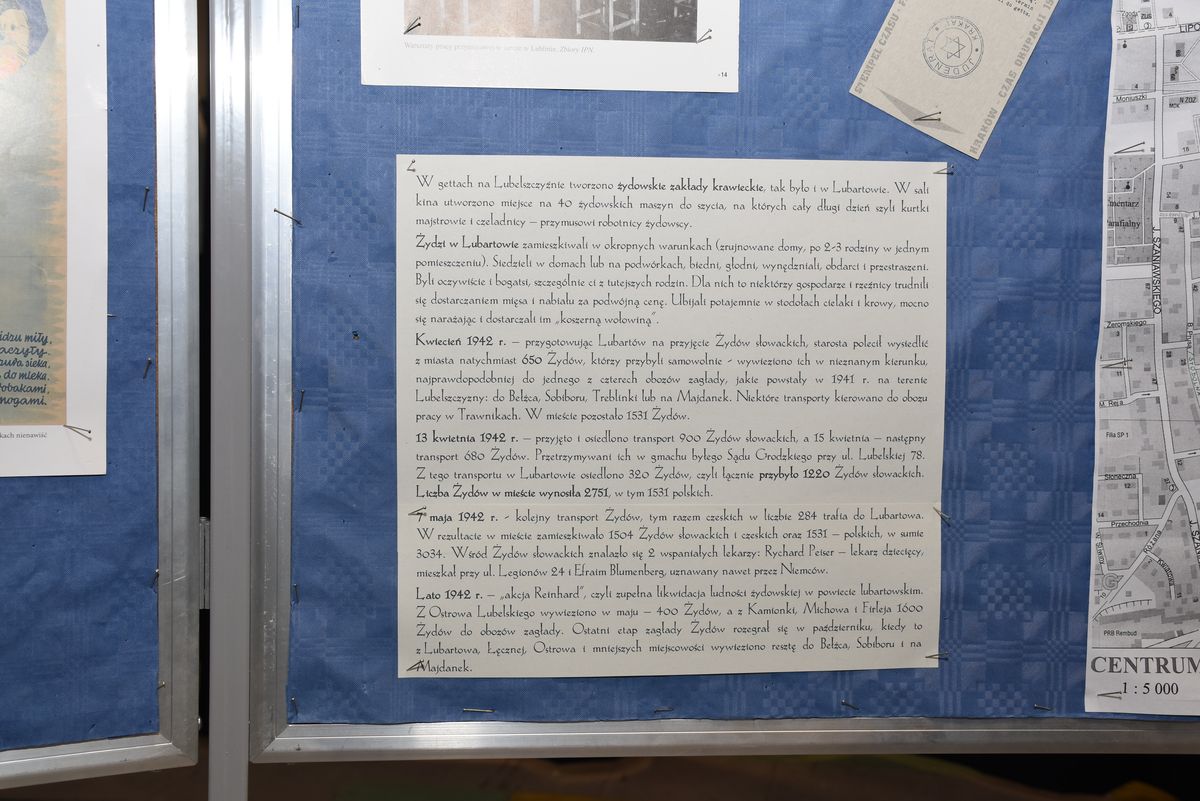 Warsztaty pracy przymusowej w getcie w Lublinie, Zbiory IPN.
-14
STEMPEL CZASU
JUDENRAT
KRAKAU
KRAKÓW - CZAS OKUPACJI
W gettach na Lubelszczyźnie tworzono żydowskie zakłady krawieckie, tak było i w Lubartowie. W sali
kina utworzono miejsce na 40 żydowskich maszyn do szycia, na których cały długi dzień szyli kurtki
majstrowie i czeladnicy – przymusowi robotnicy żydowscy.
Żydzi w Lubartowie zamieszkiwali w okropnych warunkach (zrujnowane domy, po 2-3 rodziny w jednym
pomieszczeniu). Siedzieli w domach lub na podwórkach, biedni, głodni, wynędzniali, obdarci i przestraszeni.
Byli oczywiście i bogatsi, szczególnie ci z tutejszych rodzin. Dla nich to niektórzy gospodarze i rzeźnicy trudnili
się dostarczaniem mięsa i nabiału za podwójną cenę. Ubijali potajemnie w stodołach cielaki i krowy, mocno
się narażając i dostarczali im „koszerną wołowinę".
Kwiecień 1942 r. – przygotowując Lubartów na przyjęcie Żydów słowackich, starosta polecił wysiedlić
z miasta natychmiast 650 Żydów, którzy przybyli samowolnie – wywieziono ich w nieznanym kierunku,
najprawdopodobniej do jednego z czterech obozów zagłady, jakie powstały w 1941 r. na terenie
Lubelszczyzny: do Bełżca, Sobiboru, Treblinki lub na Majdanek. Niektóre transporty kierowano do obozu
pracy w Trawnikach. W mieście pozostało 1531 Żydów.
13 kwietnia 1942 r. – przyjęto i osiedlono transport 900 Żydów słowackich, a 15 kwietnia – następny
transport 680 Żydów. Przetrzymywani ich w gmachu byłego Sądu Grodzkiego przy ul. Lubelskiej 78.
Z tego transportu w Lubartowie osiedlono 320 Żydów, czyli łącznie przybyło 1220 Żydów słowackich.
Liczba Żydów w mieście wynosiła 2751, w tym 1531 polskich.
7 maja 1942 r. - kolejny transport Żydów, tym razem czeskich w liczbie 284 trafia do Lubartowa.
W rezultacie w mieście zamieszkiwało 1504 Żydów słowackich i czeskich oraz 1531 – polskich, w sumie
3034. Wśród Żydów słowackich znalazło się 2 wspaniałych lekarzy: Rychard Peiser – lekarz dziecięcy,
mieszkał przy ul. Legionów 24 i Efraim Blumenberg, uznawany nawet przez Niemców.
Lato 1942 r. – „akcja Reinhard", czyli zupełna likwidacja ludności żydowskiej w powiecie lubartowskim.
Z Ostrowa Lubelskiego wywieziono w maju – 400 Żydów, a z Kamionki, Michowa i Firleja 1600
Żydów do obozów zagłady. Ostatni etap zagłady Żydów rozegrał się w październiku, kiedy to
z Lubartowa, Łęcznej, Ostrowa i mniejszych miejscowości wywieziono resztę do Bełżca, Sobiboru i na
Majdanek.
miły,
sieka,
do mleka.
nogami.
nienawiść
Moniuszki
J. SZANIAWSKIEGO
Żeromskiego
M. Reja
Filia SP 1
Słoneczna
Przechodnia
Różana
Kwiatowa
PRB Rembud
CENTRUM
1 : 5 000